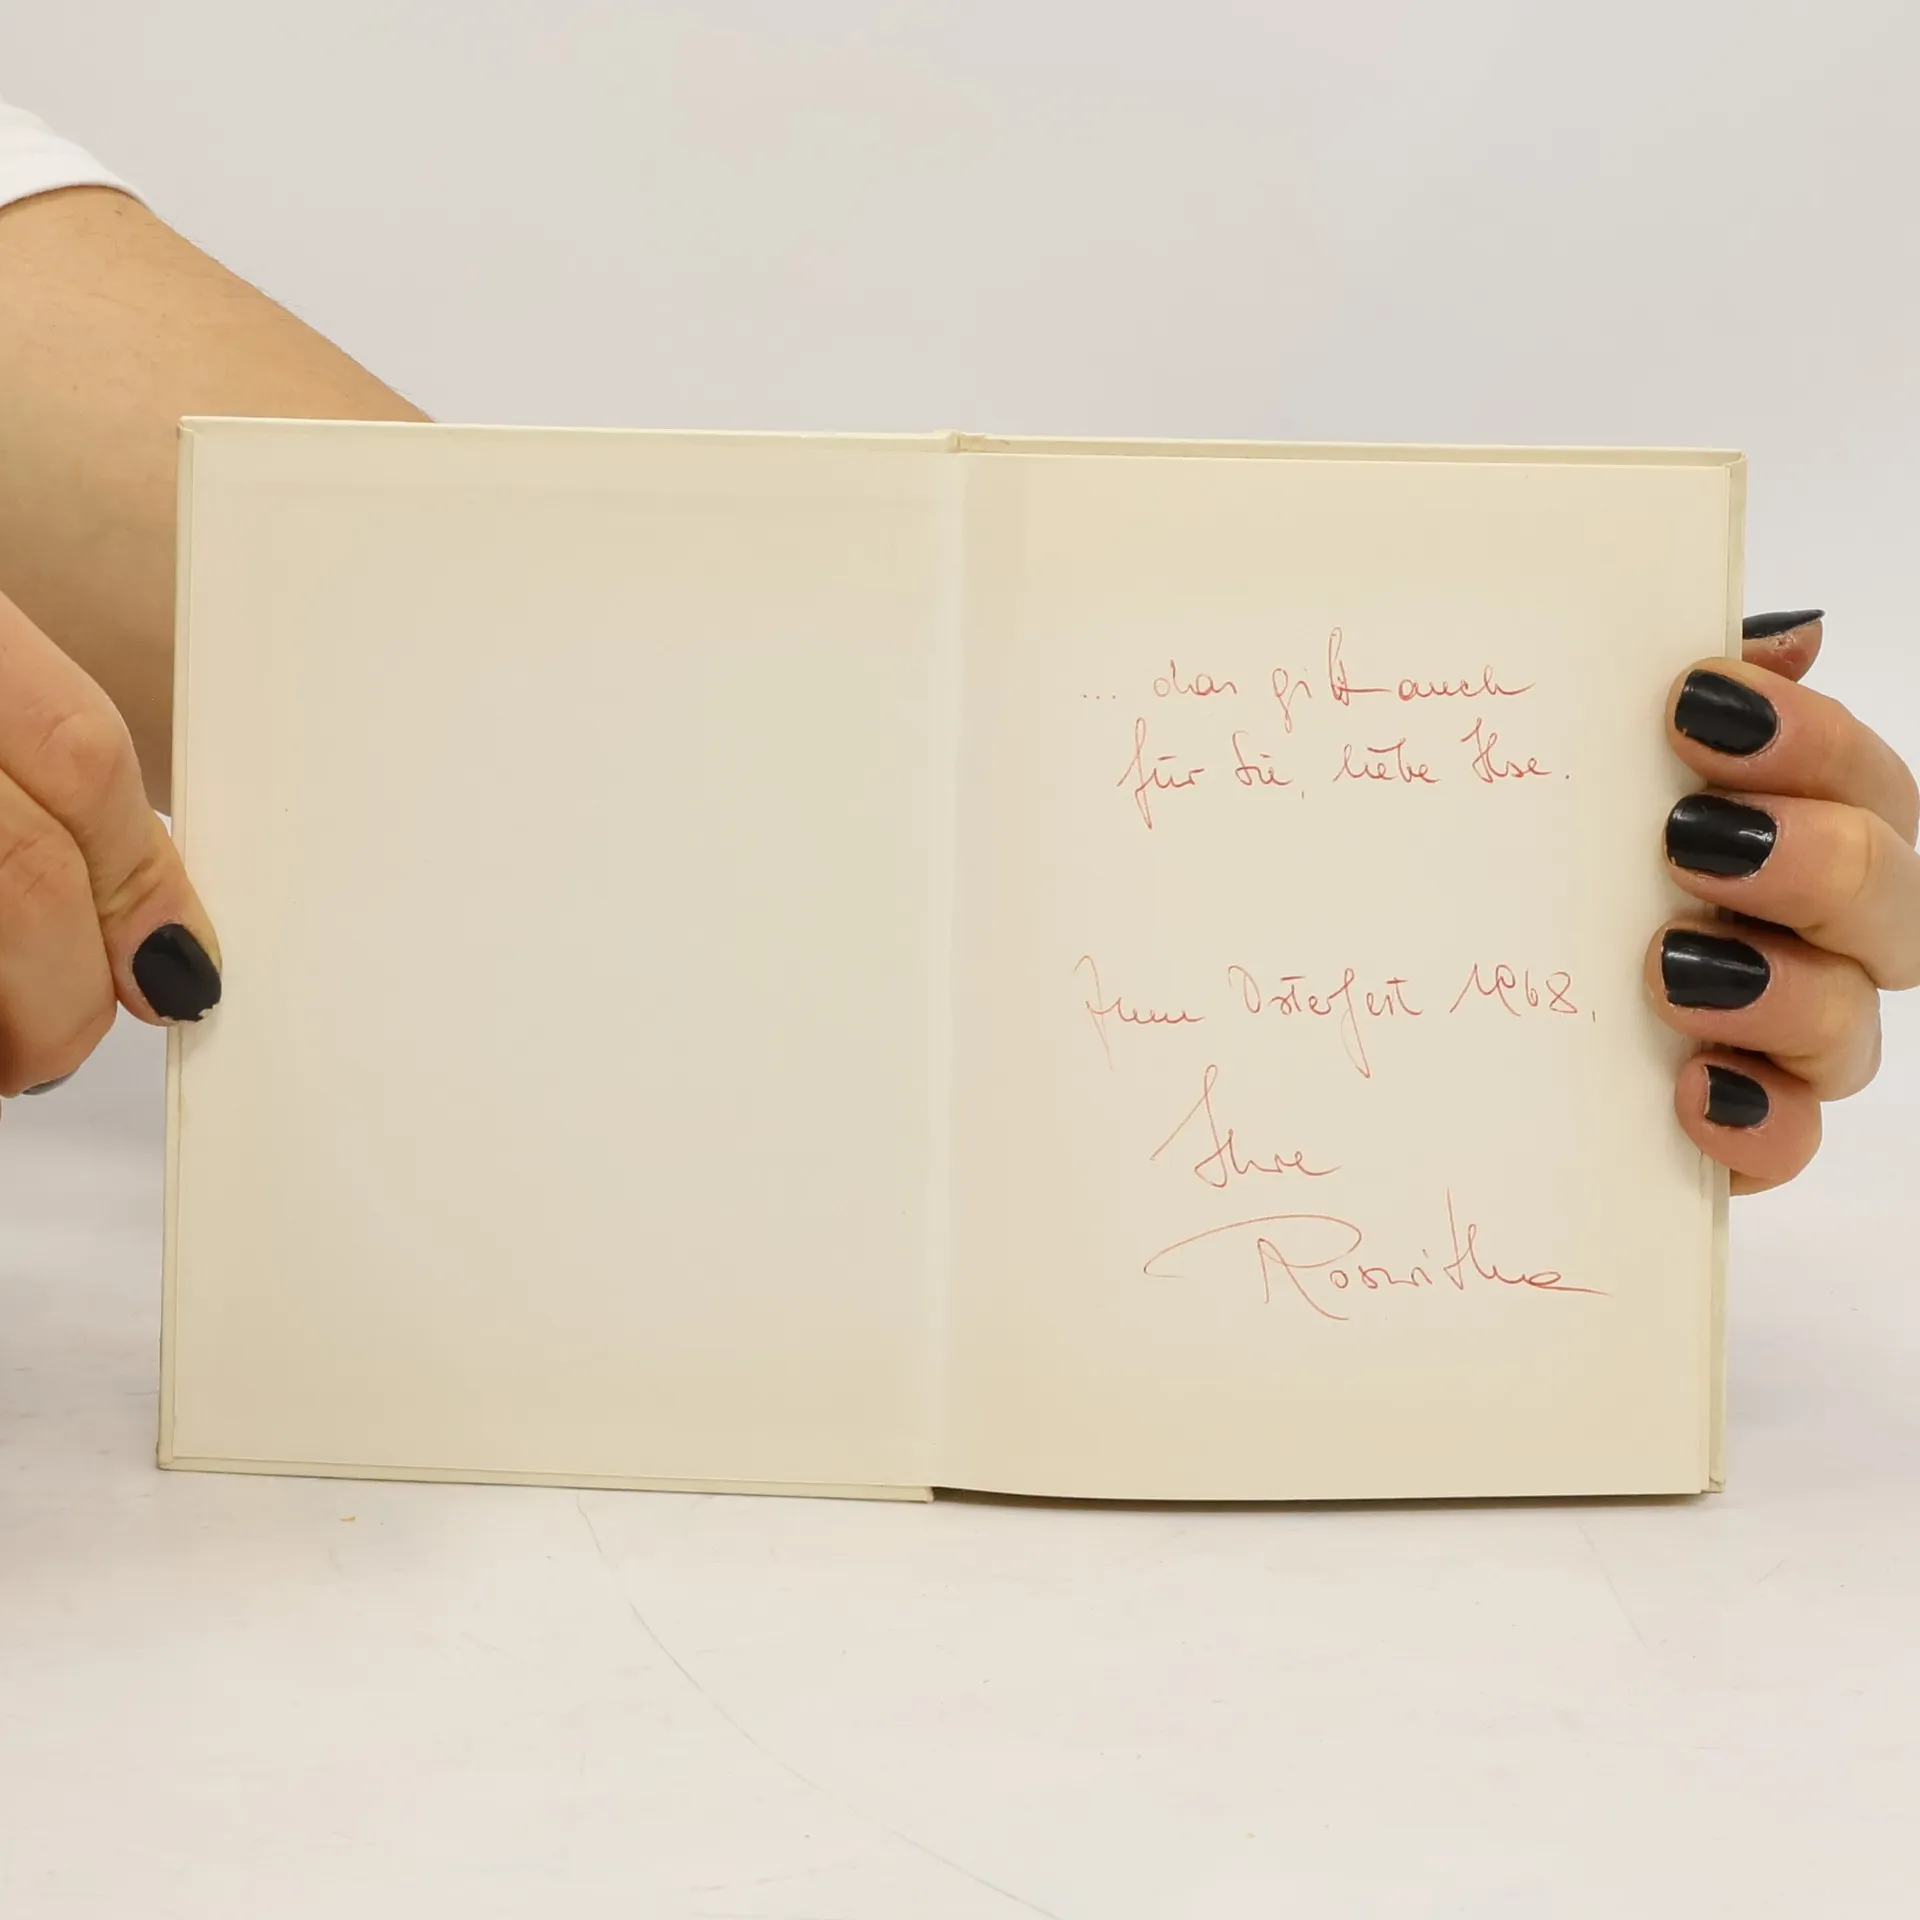 ... das gilt auch
für Sie, liebe Ilse.
Zum Osterfest 1968,
Ihre
Roswitha